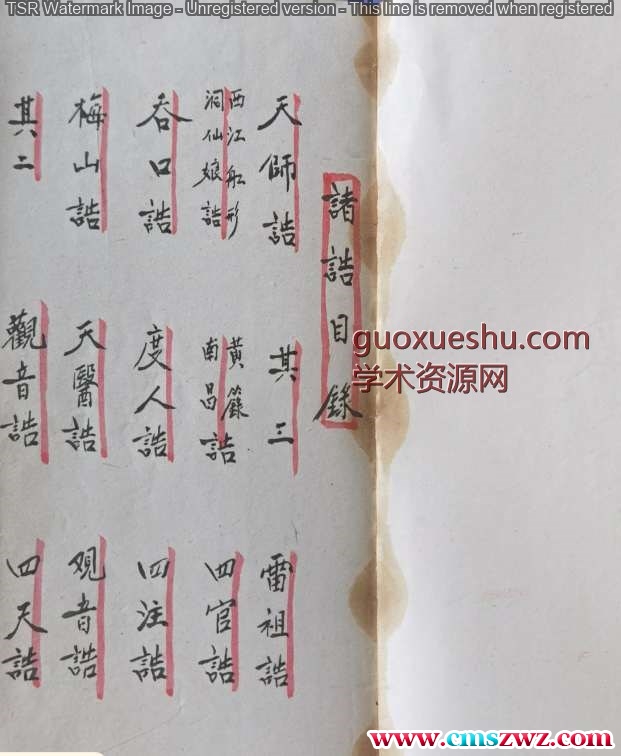 TSR Watermark Image - Unregistered version - This line is removed when registered
諸誥目錄
天師誥
其三
雷祖誥
西江船形
洞仙娘誥
黃籙
南昌誥
四官誥
吞口誥
度人誥
四注誥
梅山誥
天醫誥
观音誥
其二
觀音誥
四天誥
guoxueshu.com
学术资源网
www.cmszwz.com